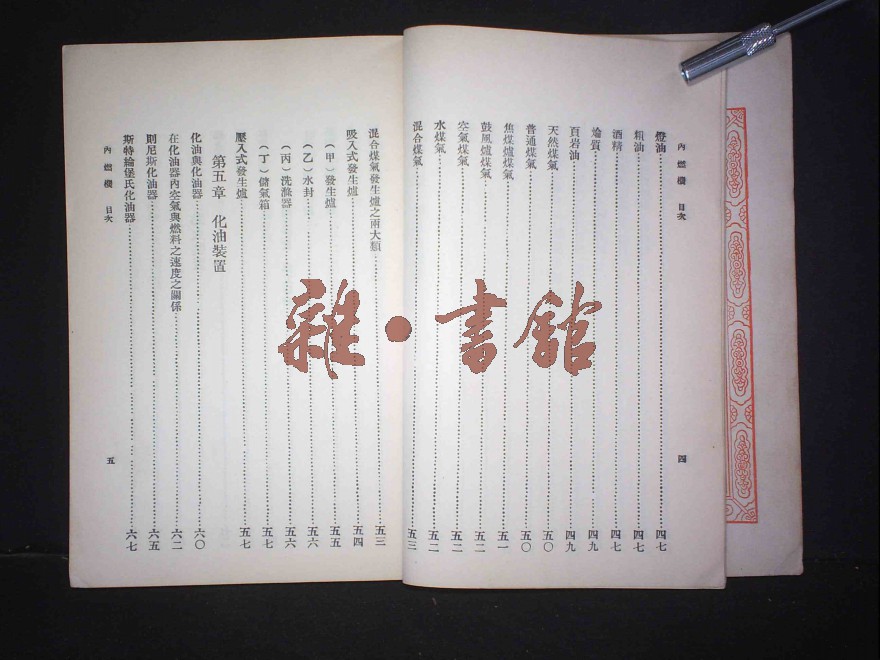 內燃機 目次
燈油 四七
粗油 四七
酒精 四七
燴質 四九
頁岩油 四九
天然煤氣 五〇
普通煤氣 五〇
焦煤爐煤氣 五一
鼓風爐煤氣 五二
空氣煤氣 五二
水煤氣 五二
混合煤氣 五三
四
混合煤氣發生爐之兩大類 五三
吸入式發生爐 五四
(甲)發生爐 五五
(乙)水封 五六
(丙)洗滌器 五六
(丁)儲氣箱 五七
壓入式發生爐 五七
第五章 化油裝置
化油與化油器 六〇
在化油器內空氣與燃料之速度之關係 六二
則尼斯化油器 六五
斯特綸堡氏化油器 六七
內燃機 目次
五
雜·書館